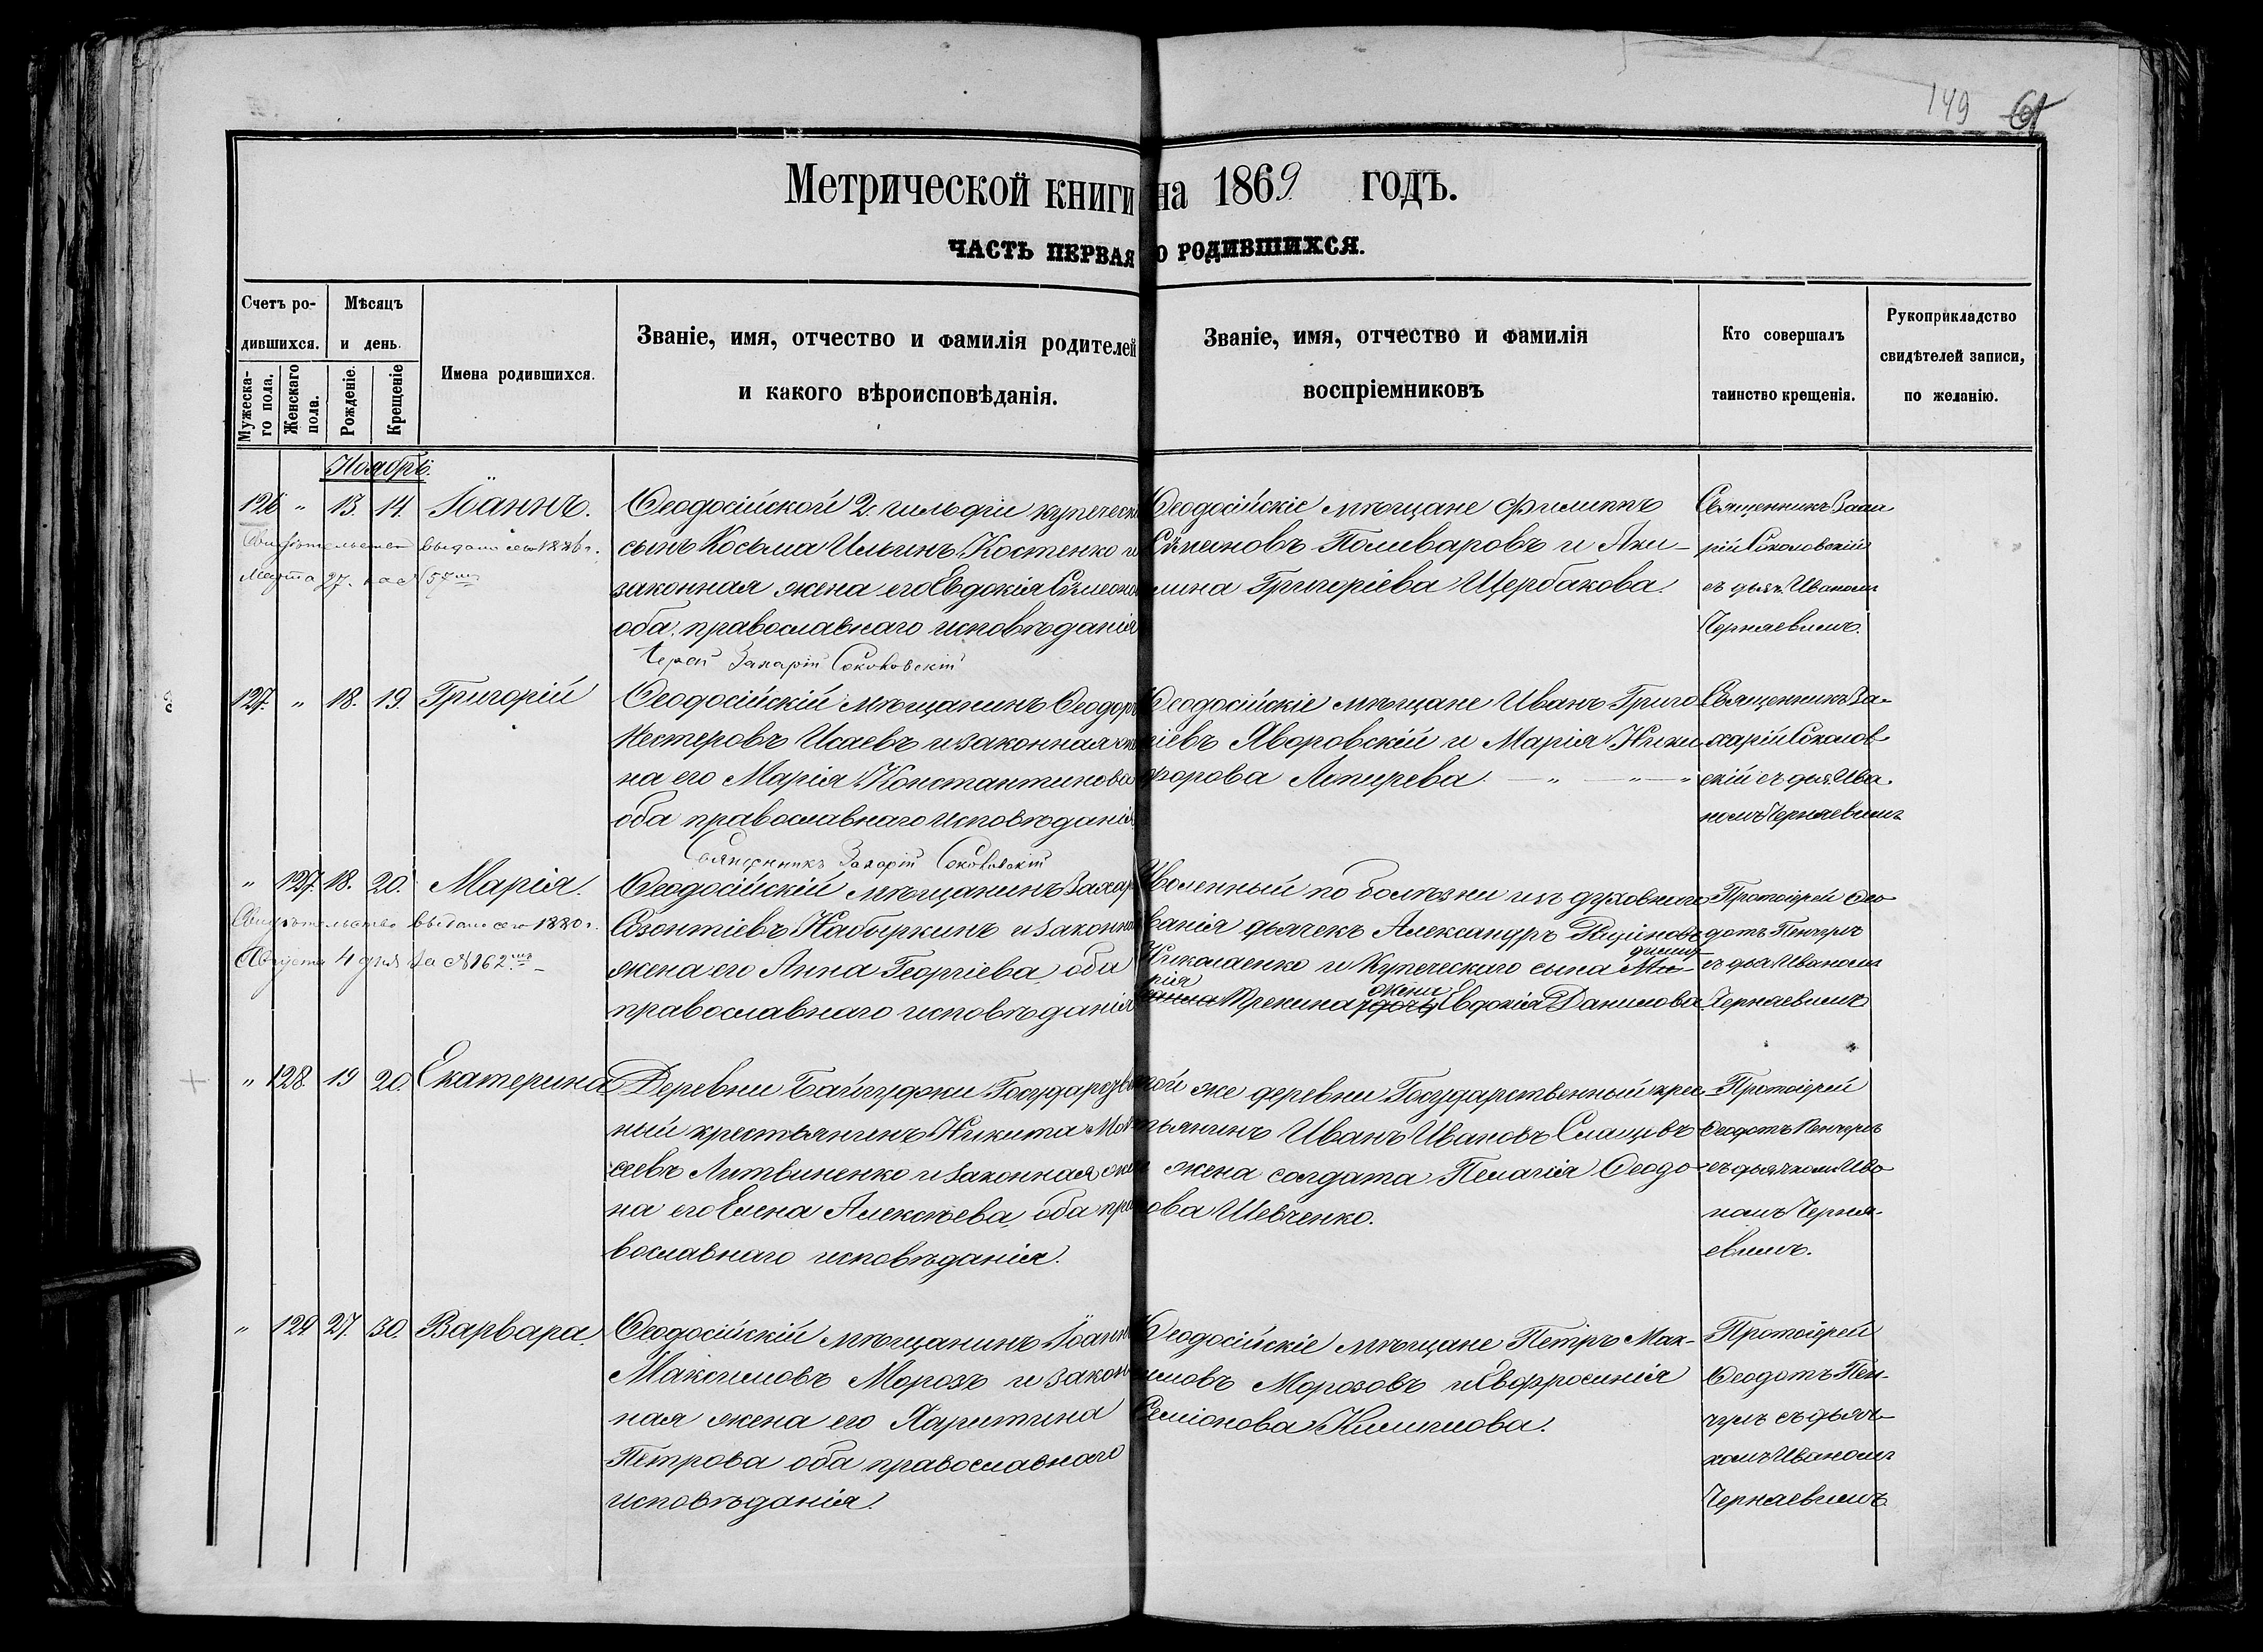 149 61
Метрической книги на 1869 годъ.
ЧАСТЬ ПЕРВАЯ О РОДИВШИХСЯ.
Счетъ ро-
дившихся.
Мужеска-
го пола.
Женскаго
пола.
Мѣсяцъ
и день.
Рожденіе.
Крещеніе
Имена родившихся.
Званіе, имя, отчество и фамилія родителей
и какого вѣроисповѣданія.
Званіе, имя, отчество и фамилія
воспріемниковъ
Кто совершалъ
таинство крещенія.
Рукоприкладство
свидѣтелей записи,
по желанію.
Ноябрь.
126 " 13. 14. Іоаннъ.
Свидѣтельство выдано сего 1886 г.
Марта 27. за № 57
Ѳеодосійской 2 гильдіи купеческ
сынъ Косьма Ильинъ Костенко и
законная жена его Евдокія Сѵмеоно
оба православнаго исповѣданія
Іерей Захарій Соколовскій
Ѳеодосійскіе мѣщане Филиппъ
Сѵмеоновъ Поливаровъ и Аки-
лина Григоріева Щербакова.
Священникъ Заха
рій Соколовскій
съ дьяч. Иваномъ
Черняевимъ.
127. " 18. 19. Григорій
Ѳеодосійскій мѣщанинъ Ѳеодоръ
Нестеровъ Исаевъ и законная же
на его Марія Константинова
оба православнаго исповѣданія
Священникъ Захарій Соколовскій
Ѳеодосійскіе мѣщане Иванъ Григо
ріевъ Яворовскій и Марія Ники
форова Лопырева — " — " — "
Священникъ За-
харій Соколов
скій съ дьяч. Ива-
номъ Черняевимъ
" 127. 18. 20. Марія.
Свидѣтельство выдано сего 1880 г.
Августа 4 дня за № 162
Ѳеодосійскій мѣщанинъ Захар
Созонтіевъ Набыркинъ и законная
жена его Анна Георгіева, оба
православнаго исповѣданія
Уволенный по болѣзни изъ духовнаго
званія дьячекъ Александръ
Николаенко и Купеческаго сына
жена Евдокія Данилова
Протоіерей Ѳео
дотъ Пенчулъ
съ дьяч. Иваномъ
Черняевимъ
" 128. 19 20. Екатерина
Деревни Байгуджи Государстве
ный крестьянинъ Никита Мои
сеевъ Литвиненко и законная же
на его Елена Алексѣева, оба пра
вославнаго исповѣданія.
той же деревни Государственный крес-
тьянинъ Иванъ Ивановъ Слащевъ
и жена солдата Пелагія Ѳеодо-
това Шевченко.
Протоіерей
Ѳеодотъ Пенчулъ
съ дьячкомъ Ива
номъ Черня-
евимъ.
" 129 27. 30. Варвара.
Ѳеодосійскій мѣщанинъ Іоаннъ
Максимовъ Морозъ и закон
ная жена его Харитина
Петрова оба православнаго
исповѣданія.
Ѳеодосійскіе мѣщане Петръ Мак-
симовъ Морозовъ и Евфросинія
Семіонова Климкова.
Протоіерей
Ѳеодотъ Пен-
чулъ съ дьяч-
комъ Иваномъ
Черняевимъ